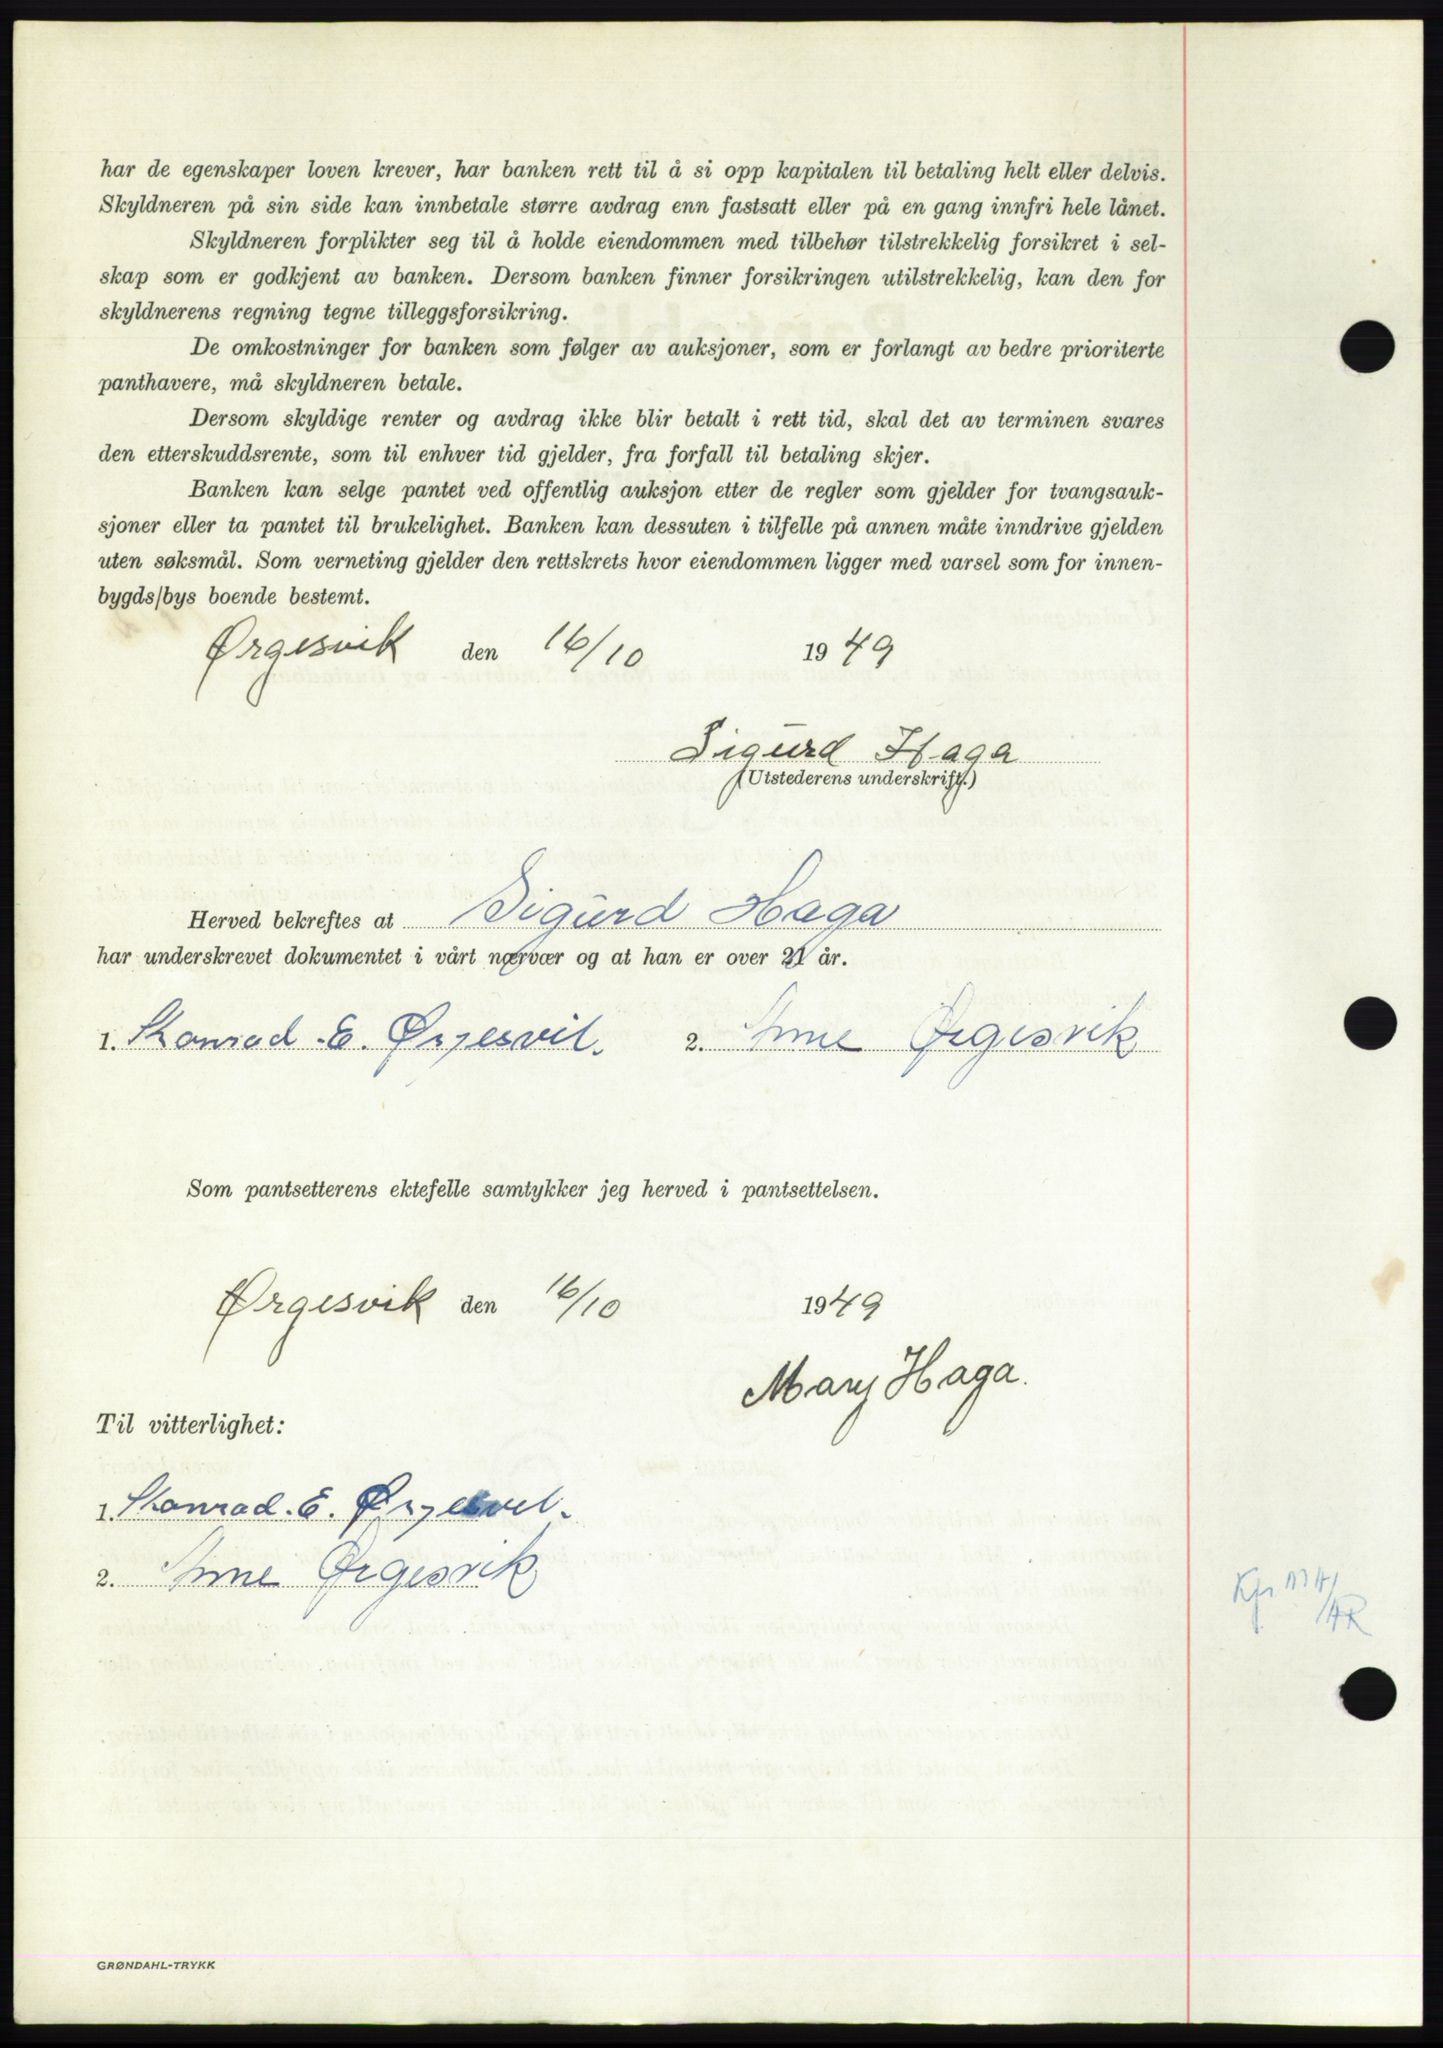 har de egenskaper loven krever, har banken rett til å si opp kapitalen til betaling helt eller delvis.
Skyldneren på sin side kan innbetale større avdrag enn fastsatt eller på en gang innfri hele lånet.
Skyldneren forplikter seg til å holde eiendommen med tilbehør tilstrekkelig forsikret i sel-
skap som er godkjent av banken. Dersom banken finner forsikringen utilstrekkelig, kan den for
skyldnerens regning tegne tilleggsforsikring.
De omkostninger for banken som følger av auksjoner, som er forlangt av bedre prioriterte
panthavere, må skyldneren betale.
Dersom skyldige renter og avdrag ikke blir betalt i rett tid, skal det av terminen svares
den etterskuddsrente, som til enhver tid gjelder, fra forfall til betaling skjer.
Banken kan selge pantet ved offentlig auksjon etter de regler som gjelder for tvangsauk-
sjoner eller ta pantet til brukelighet. Banken kan dessuten i tilfelle på annen måte inndrive gjelden
uten søksmål. Som verneting gjelder den rettskrets hvor eiendommen ligger med varsel som for innen-
bygds/bys boende bestemt.
Ørgesvik den 16/10 1949
Sigurd Haga
(Utstederens underskrift.)
Herved bekreftes at Sigurd Haga
har underskrevet dokumentet i vårt nærvær og at han er over 21 år.
1. Konrad E. Ørgesvik. 2. Anne Ørgesvik
Som pantsetterens ektefelle samtykker jeg herved i pantsettelsen.
Ørgesvik den 16/10 1949
Mary Haga.
Til vitterlighet:
1. Konrad E. Ørgesvik.
2. Anne Ørgesvik
GRØNDAHL-TRYKK